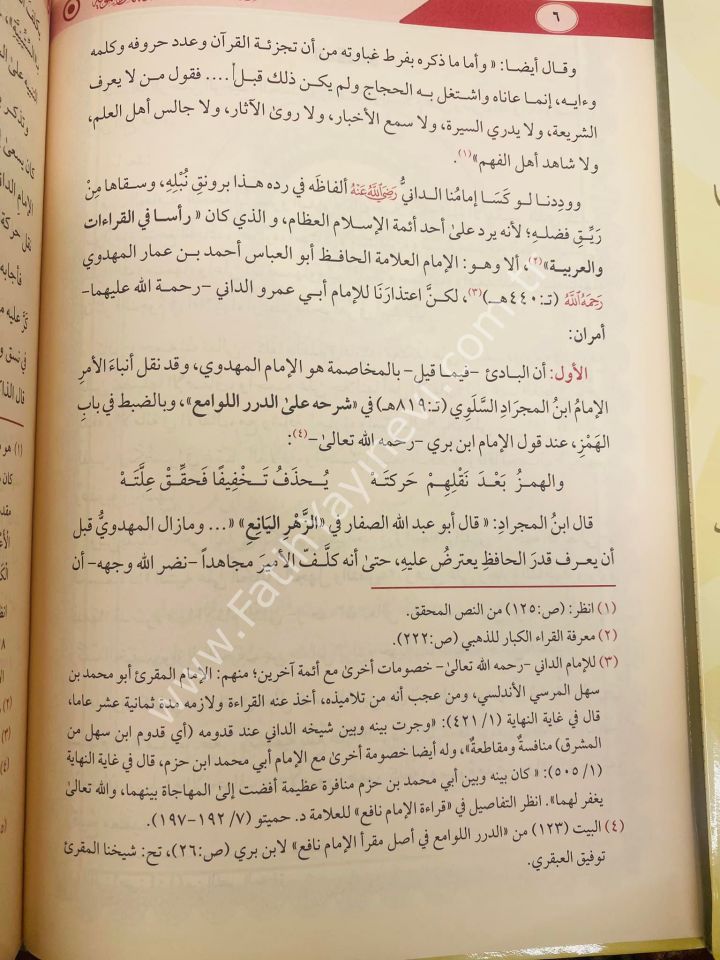 ٦
وقال أيضا: «وأما ما ذكره بفرط غباوته من أن تجزئة القرآن وعدد حروفه وكلمه
وءايه، إنما عاناه واشتغل به الحجاج ولم يكن ذلك قبل] .... فقول من لا يعرف
الشريعة، ولا يدري السيرة، ولا سمع الأخبار، ولا روىٰ الآثار، ولا جالس أهل العلم،
ولا شاهد أهل الفهم»(١).
ووددنا لو كَسَا إمامُنا الدانيُّ رَضِيَ اللَّهُ عَنْهُ ألفاظَه في رده هذا برونقِ نُبْلِهِ، وسقاها مِنْ
رَيِّقِ فضلهِ؛ لأنه يرد علىٰ أحد أئمة الإسلام العظام، و الذي كان «رأسا في القراءات
والعربية»(٢)، ألا وهو: الإمام العلامة الحافظ أبو العباس أحمد بن عمار المهدوي
رَحِمَهُ اللَّهُ (تـ:٤٤٠هـ)(٣)، لكنَّ اعتذارَنَا للإمام أبي عمرو الداني -رحمة الله عليهما-
أمران:
الأول: أن البادئ -فيما قيل- بالمخاصمة هو الإمام المهدوي، وقد نقل أنباءَ الأمرِ
الإمامُ ابنُ المجرَاد السَّلَوِي (تـ:٨١٩هـ) في «شرحه علىٰ الدرر اللوامع»، وبالضبط في بابِ
الهَمْزِ، عند قول الإمام ابن بري -رحمه الله تعالىٰ-(٤):
والهمزُ بَعْدَ نَقْلِهِمْ حَركتَهْ يُحذَفُ تَخْفِيفًا فَحقِّقْ عِلَّتَهْ
قال ابنُ المجراد: «قال أبو عبد الله الصفار في «الزَّهْرِ اليَانعِ» «... ومازال المهدويُّ قبل
أن يعرف قدرَ الحافظِ يعترضُ عليهِ، حتىٰ أنه كلَّفَ الأميرَ مجاهداً -نضر الله وجهه- أن
(١) انظر: (ص:١٢٥) من النص المحقق.
(٢) معرفة القراء الكبار للذهبي (ص:٢٢٢).
(٣) للإمام الداني -رحمه الله تعالىٰ- خصومات أخرىٰ مع أئمة آخرين؛ منهم: الإمام المقرئ أبو محمد بن
سهل المرسي الأندلسي، ومن عجب أنه من تلاميذه، أخذ عنه القراءة ولازمه مدة ثمانية عشر عاما،
قال في غاية النهاية (١/ ٤٢١): «وجرت بينه وبين شيخه الداني عند قدومه (أي قدوم ابن سهل من
المشرق) منافسةٌ ومقاطعةٌ»، وله أيضا خصومة أخرىٰ مع الإمام أبي محمد ابن حزم، قال في غاية النهاية
(١/ ٥٠٥): «كان بينه وبين أبي محمد بن حزم منافرة عظيمة أفضت إلىٰ المهاجاة بينهما، والله تعالىٰ
يغفر لهما». انظر التفاصيل في «قراءة الإمام نافع» للعلامة د. حميتو (٧/ ١٩٢-١٩٧).
(٤) البيت (١٢٣) من «الدرر اللوامع في أصل مقرأ الإمام نافع» لابن بري (ص:٢٦)، تح: شيخنا المقرئ
توفيق العبقري.
www.FatihYayinevi.com.tr